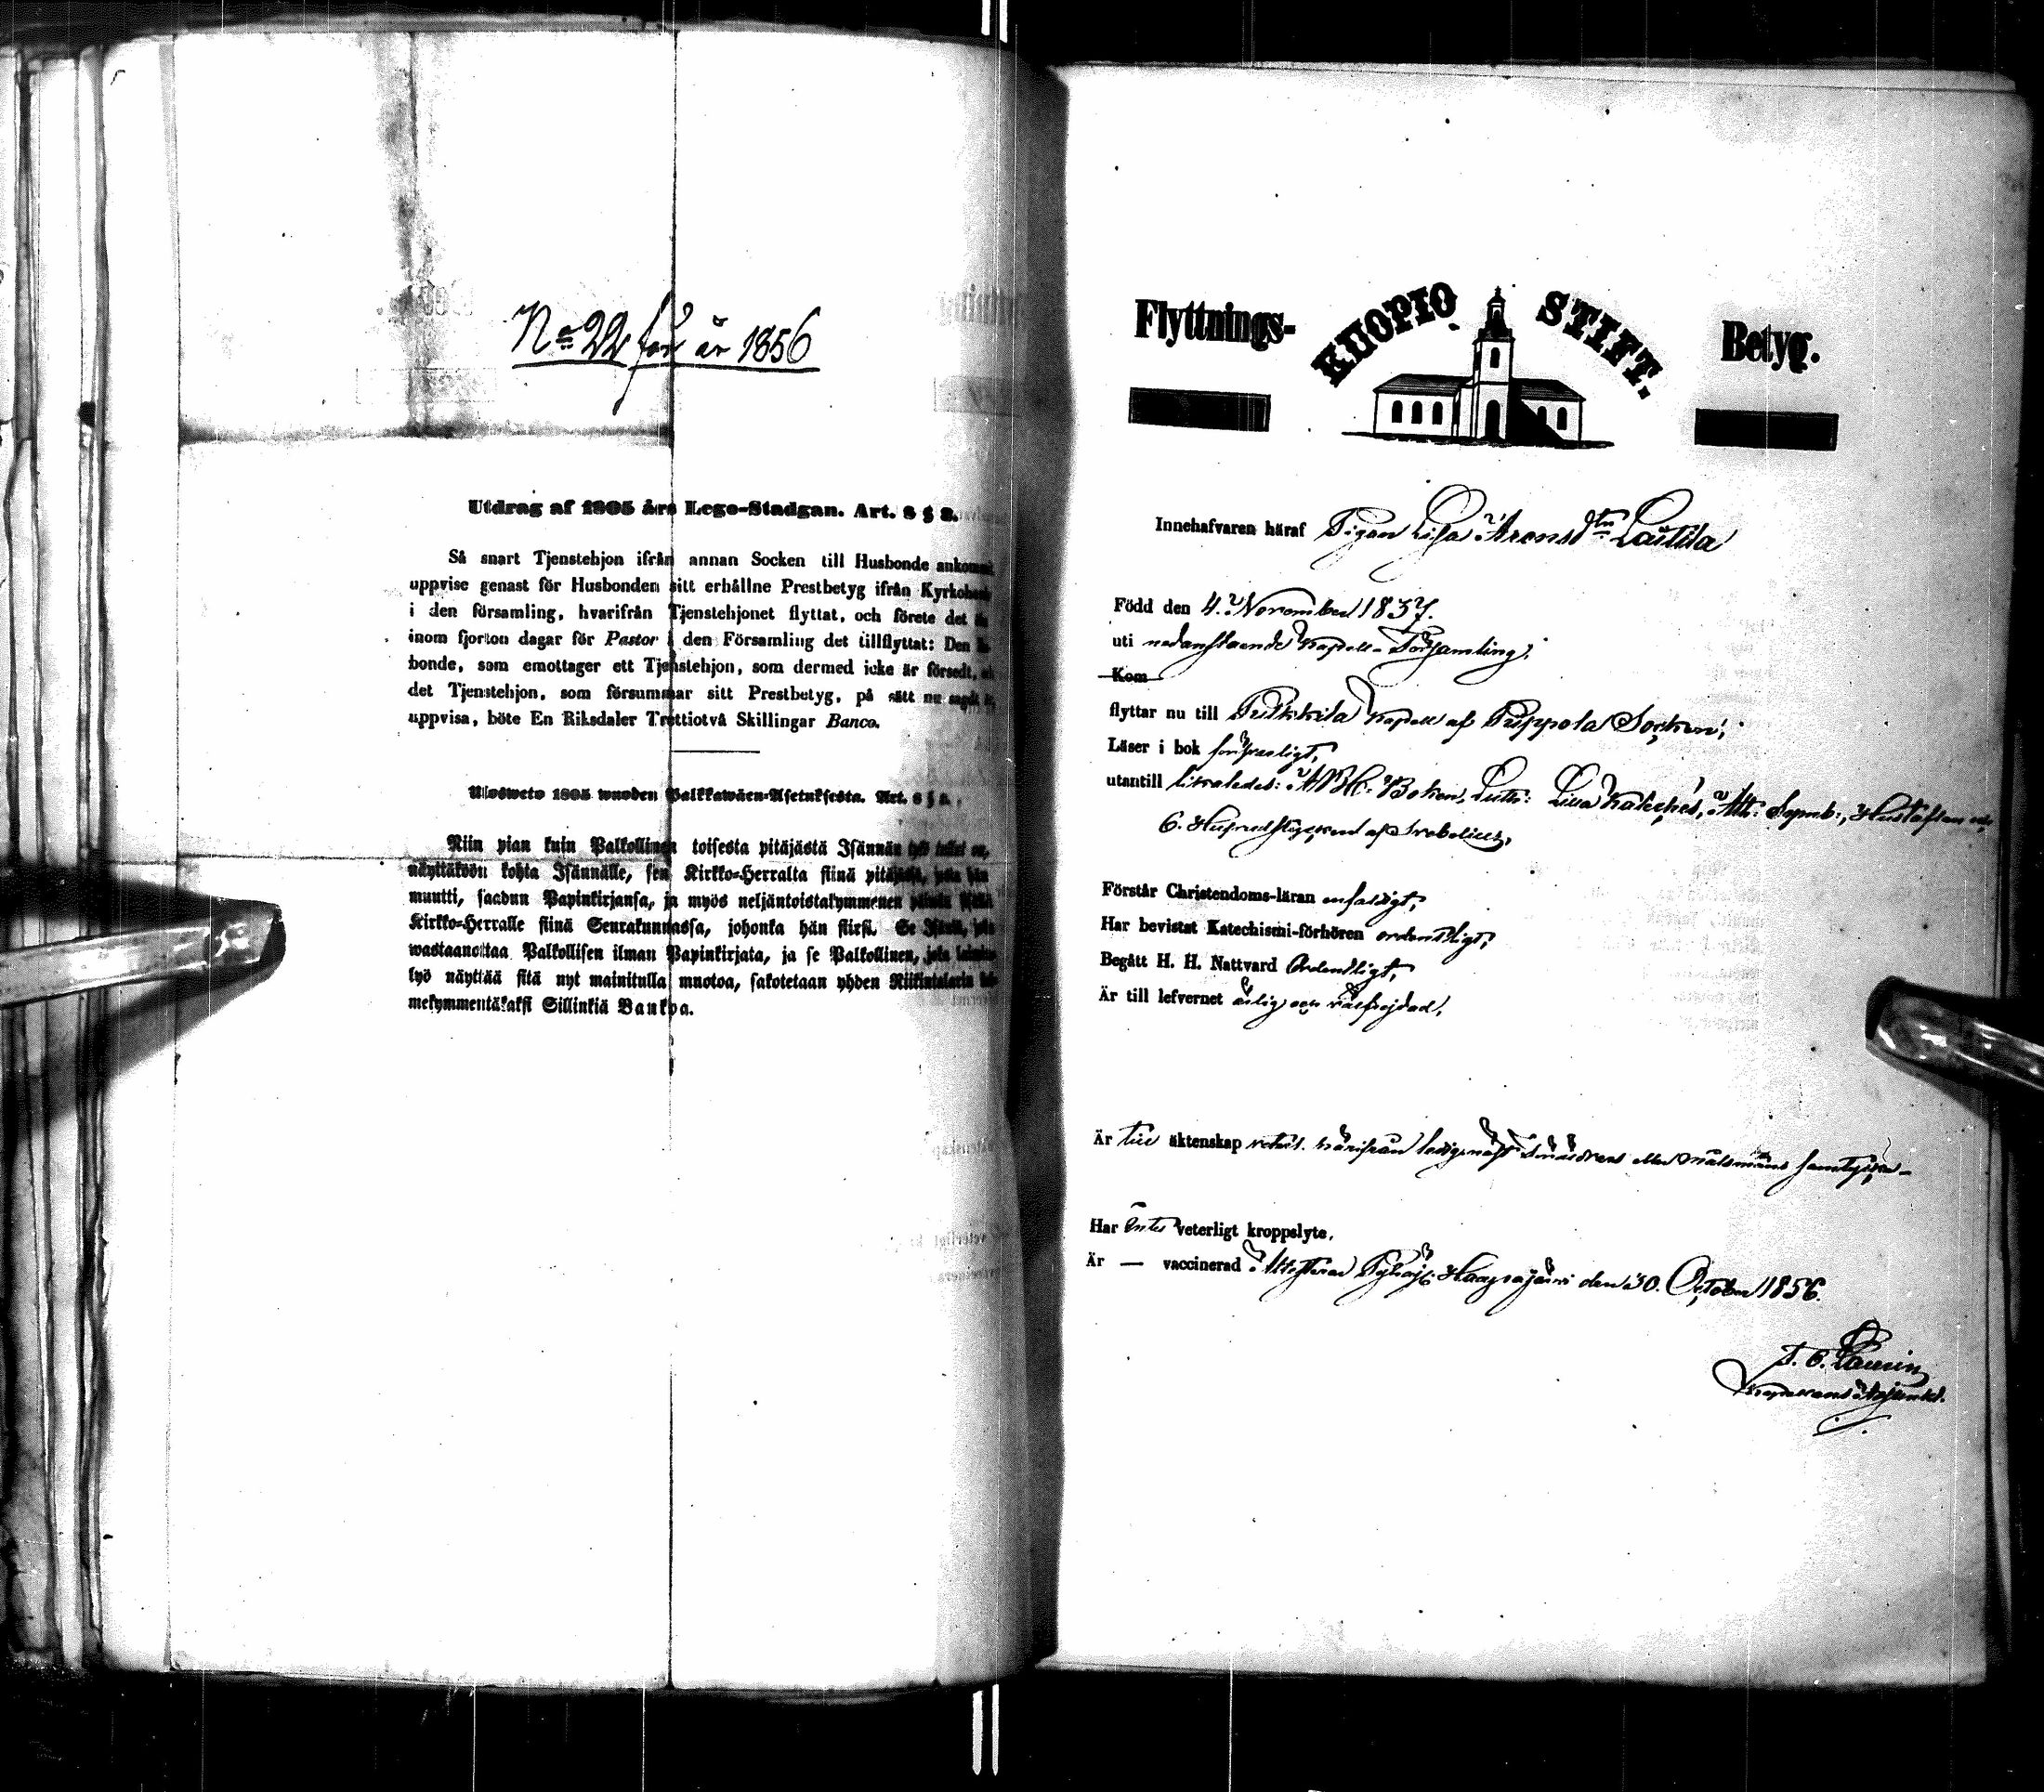 No 22 för år 1856
Utdrag af 1805 års Lego-Stadgan. Art. 8 § 3.
Så snart Tjenstehjon ifrån annan Socken till Husbonde ankommit
uppvise genast för Husbonden sitt erhållne Prestbetyg ifrån
i den församling, hvarifrån Tjenstehjonet flyttat, och förete det
inom fjorton dagar för Pastor i den Församling det tillflyttat: Den
bonde, som emottager ett Tjenstehjon, som dermed icke är försedt,
det Tjenstehjon, som försummar sitt Prestbetyg, på sätt nu sagdt
uppvisa, böte En Riksdaler Trettiotvå Skillingar Banco.
Ulosweto 1805 wuoden Palkkawäen-Asetuksesta. Art. 8 §
Niin pian kuin Palkollinen toisesta pitäjästä Isännän
näyttäköön kohta Isännälle, sen Kirkko-Herralta siinä
muutti, saadun Papinkirjansa, ja myös neljäntoistakymmenen
Kirkko-Herralle siinä Seurakunnassa, johonka hän siirsi. Se
wastaanottaa Palkollisen ilman Papinkirjata, ja se Palkollinen,
lyö näyttää sitä nyt mainitulla muotoa, sakotetaan yhden
mekymmentäkaksi Sillinkiä Bankoa.
Flyttnings- KUOPIO STIFT. Betyg.
Innehafvaren häraf Pigan Lisa Aronsdtr Laitila
Född den 4. November 1837.
uti nedanstaende Kapell-Församling;
Kom
flyttar nu till Pulkkila Kapell af Pippola Socken;
Läser i bok försvarligt,
utantill likaledes: ABC-Boken, Luth: Lilla Kateches, Ath: Symb:, Hustaflan
6. af Svebelius,
Förstår Christendoms-läran enfaldigt,
Har bevistat Katechismi-förhören ordentligt,
Begått H. H. Nattvard Ordentligt,
Är till lefvernet ärlig och välfrejdad,
Är till äktenskap härifrån ledig eller Målsmans samtycke
Har intet veterligt kroppslyte.
Är — vaccinerad Attesterar Pyhäj: Haapajärvi den 30. October 1856.
Laurin
Kapellans Adjunkt.